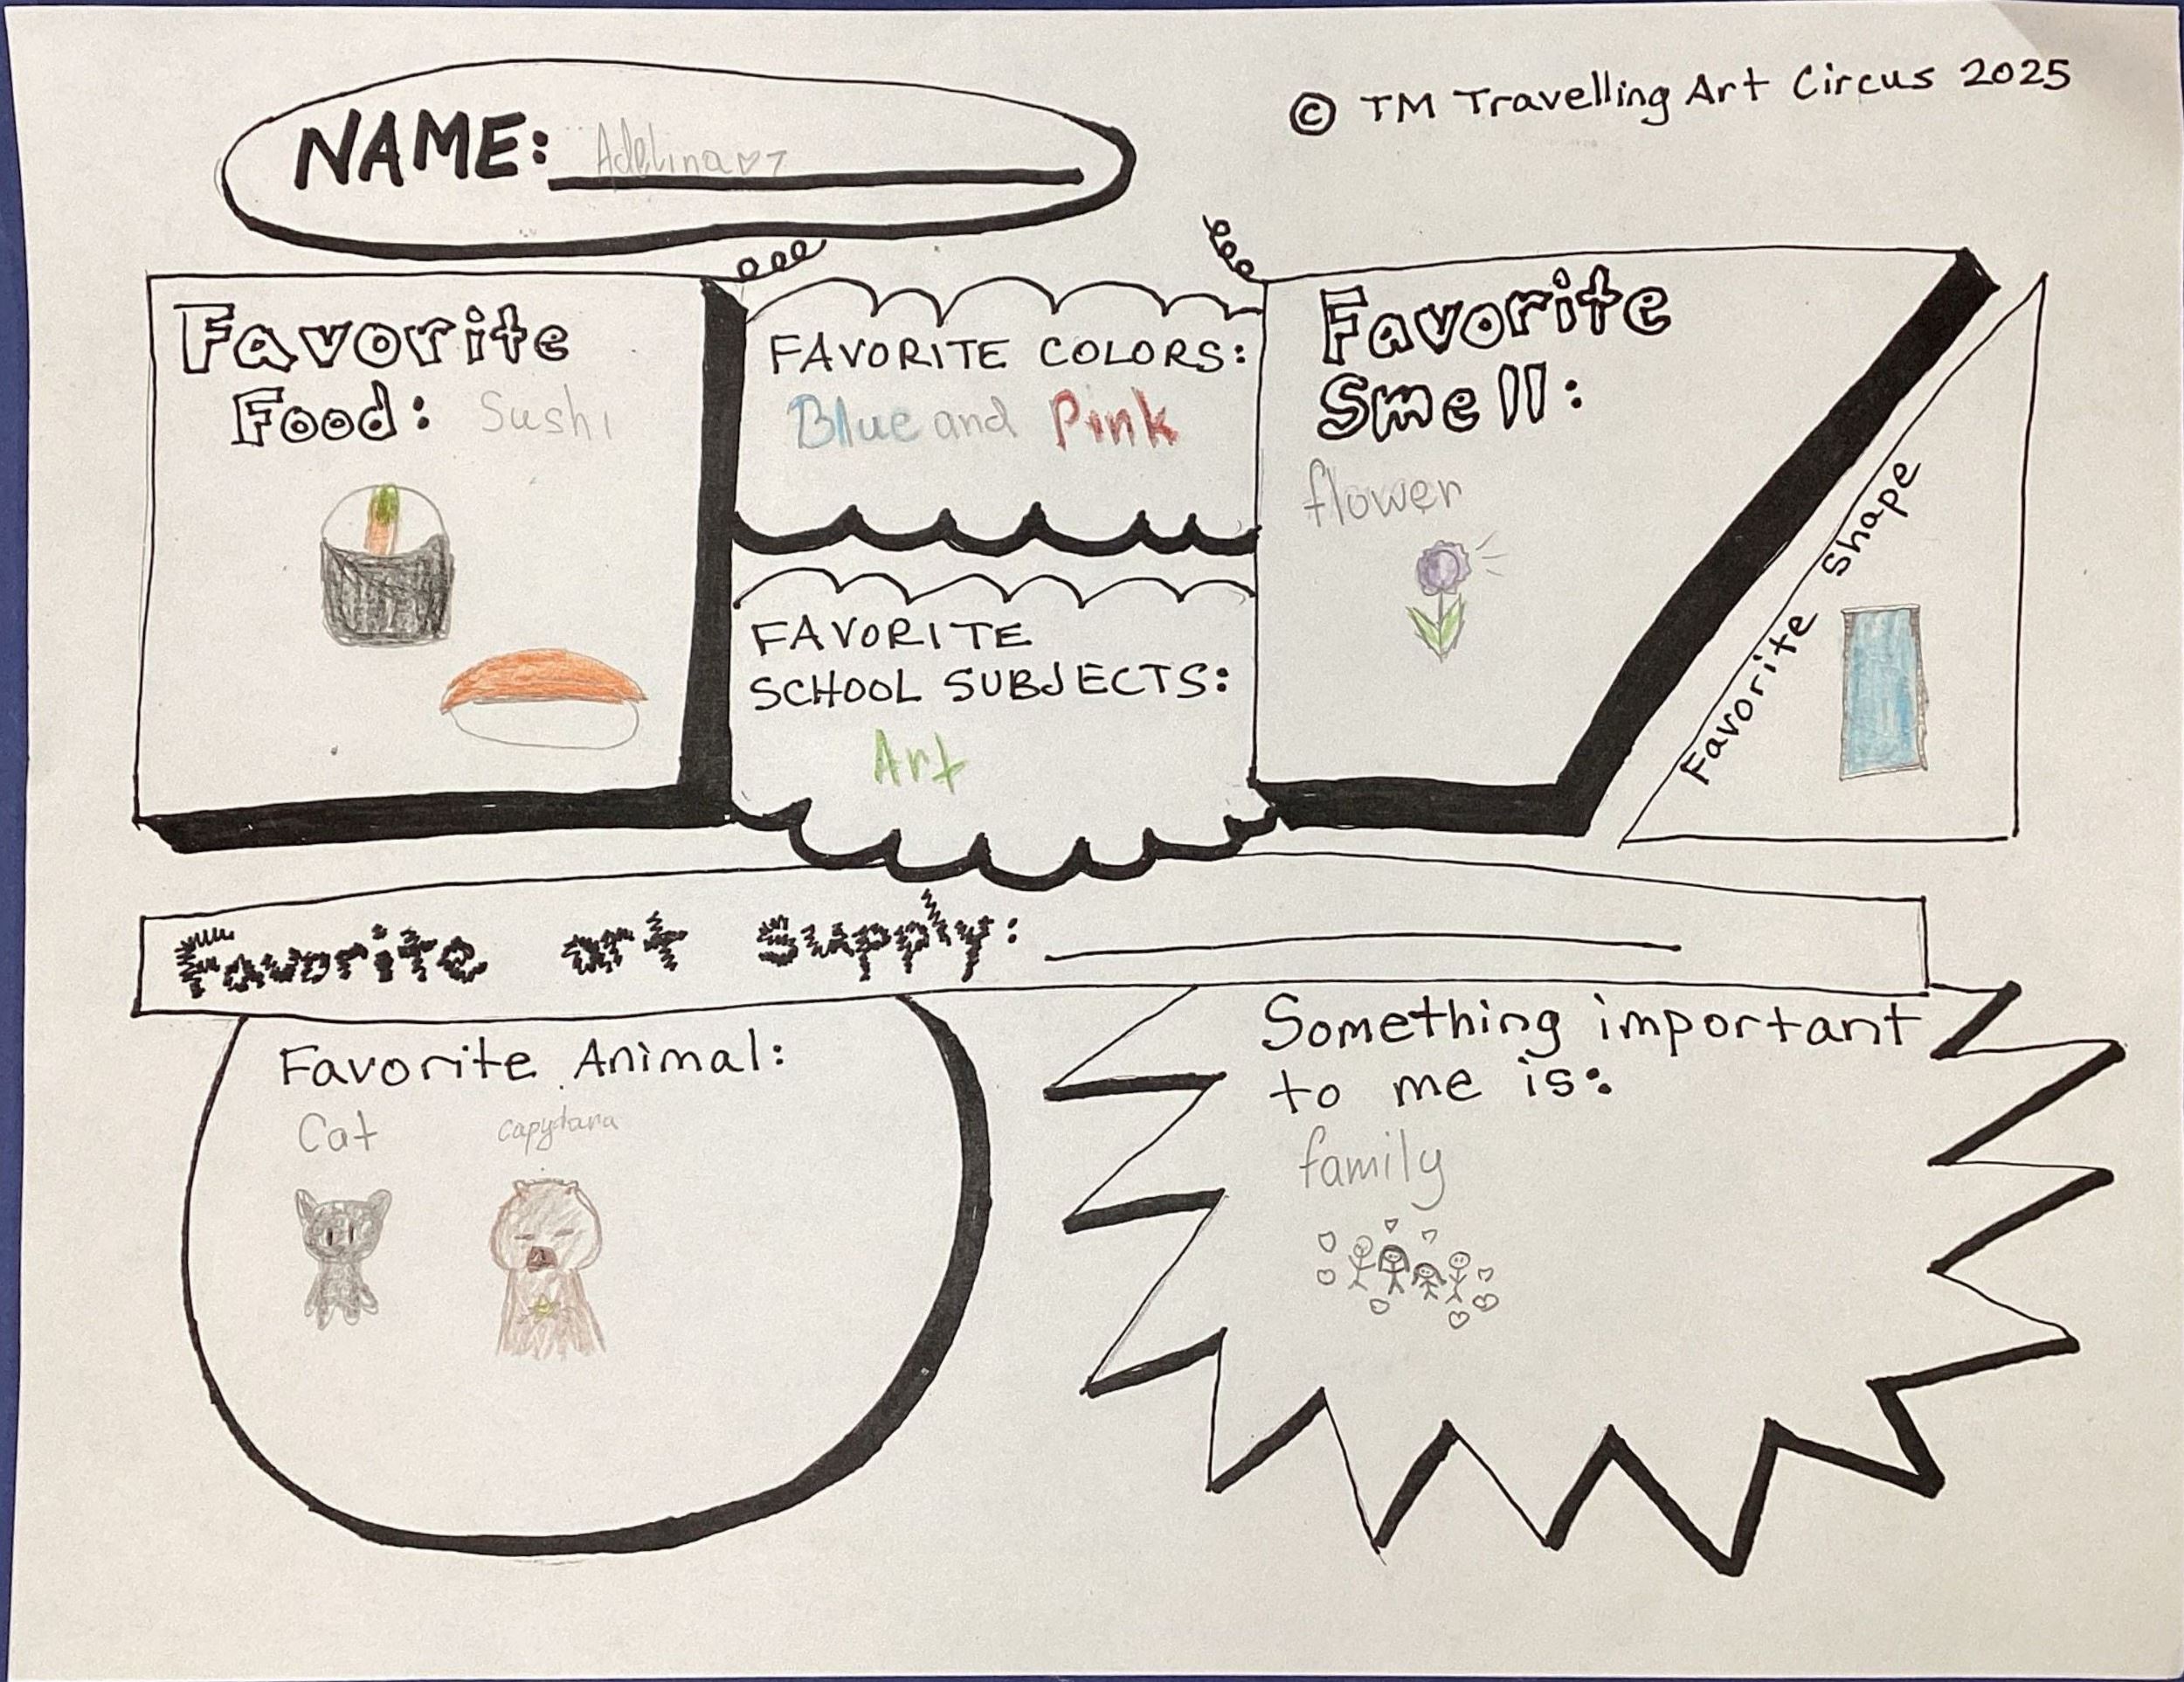 © TM Travelling Art Circus 2025
NAME: Adelina♡7
Favorite
Food: Sushi
FAVORITE COLORS:
Blue and Pink
FAVORITE
SCHOOL SUBJECTS:
Art
Favorite
Smell:
flower
Favorite Shape
Favorite art supply:
Favorite Animal:
Cat capybara
Something important
to me is:
family